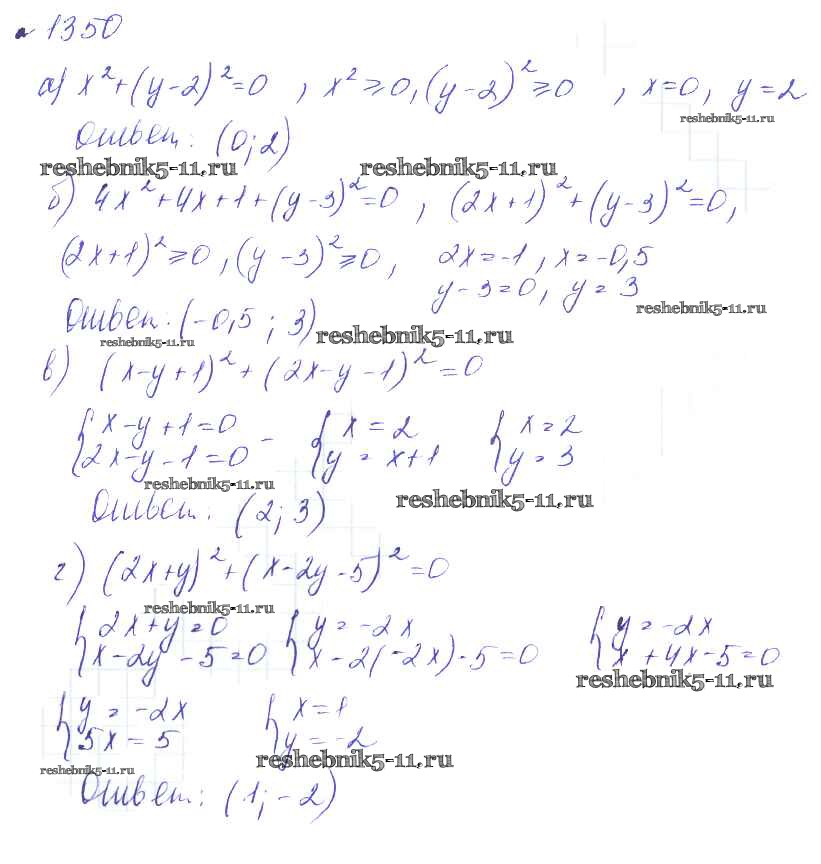 № 1350
а) x²+(y-2)²=0 , x²≥0, (y-2)²≥0 , x=0, y=2
reshebnik5-11.ru
Ответ: (0;2)
reshebnik5-11.ru reshebnik5-11.ru
б) 4x²+4x+1+(y-3)²=0 , (2x+1)²+(y-3)²=0,
(2x+1)²≥0, (y-3)²≥0, 2x=-1, x=-0,5
y-3=0, y=3
reshebnik5-11.ru
Ответ: (-0,5 ; 3)
reshebnik5-11.ru
reshebnik5-11.ru
в) (x-y+1)²+(2x-y-1)²=0
{x-y+1=0 - {x=2 {x=2
2x-y-1=0 y=x+1 y=3
reshebnik5-11.ru
reshebnik5-11.ru
Ответ: (2;3)
г) (2x+y)²+(x-2y-5)²=0
reshebnik5-11.ru
{2x+y=0 {y=-2x {y=-2x
x-2y-5=0 x-2(-2x)-5=0 x+4x-5=0
reshebnik5-11.ru
{y=-2x {x=1
5x=5 y=-2
reshebnik5-11.ru
reshebnik5-11.ru
Ответ: (1;-2)